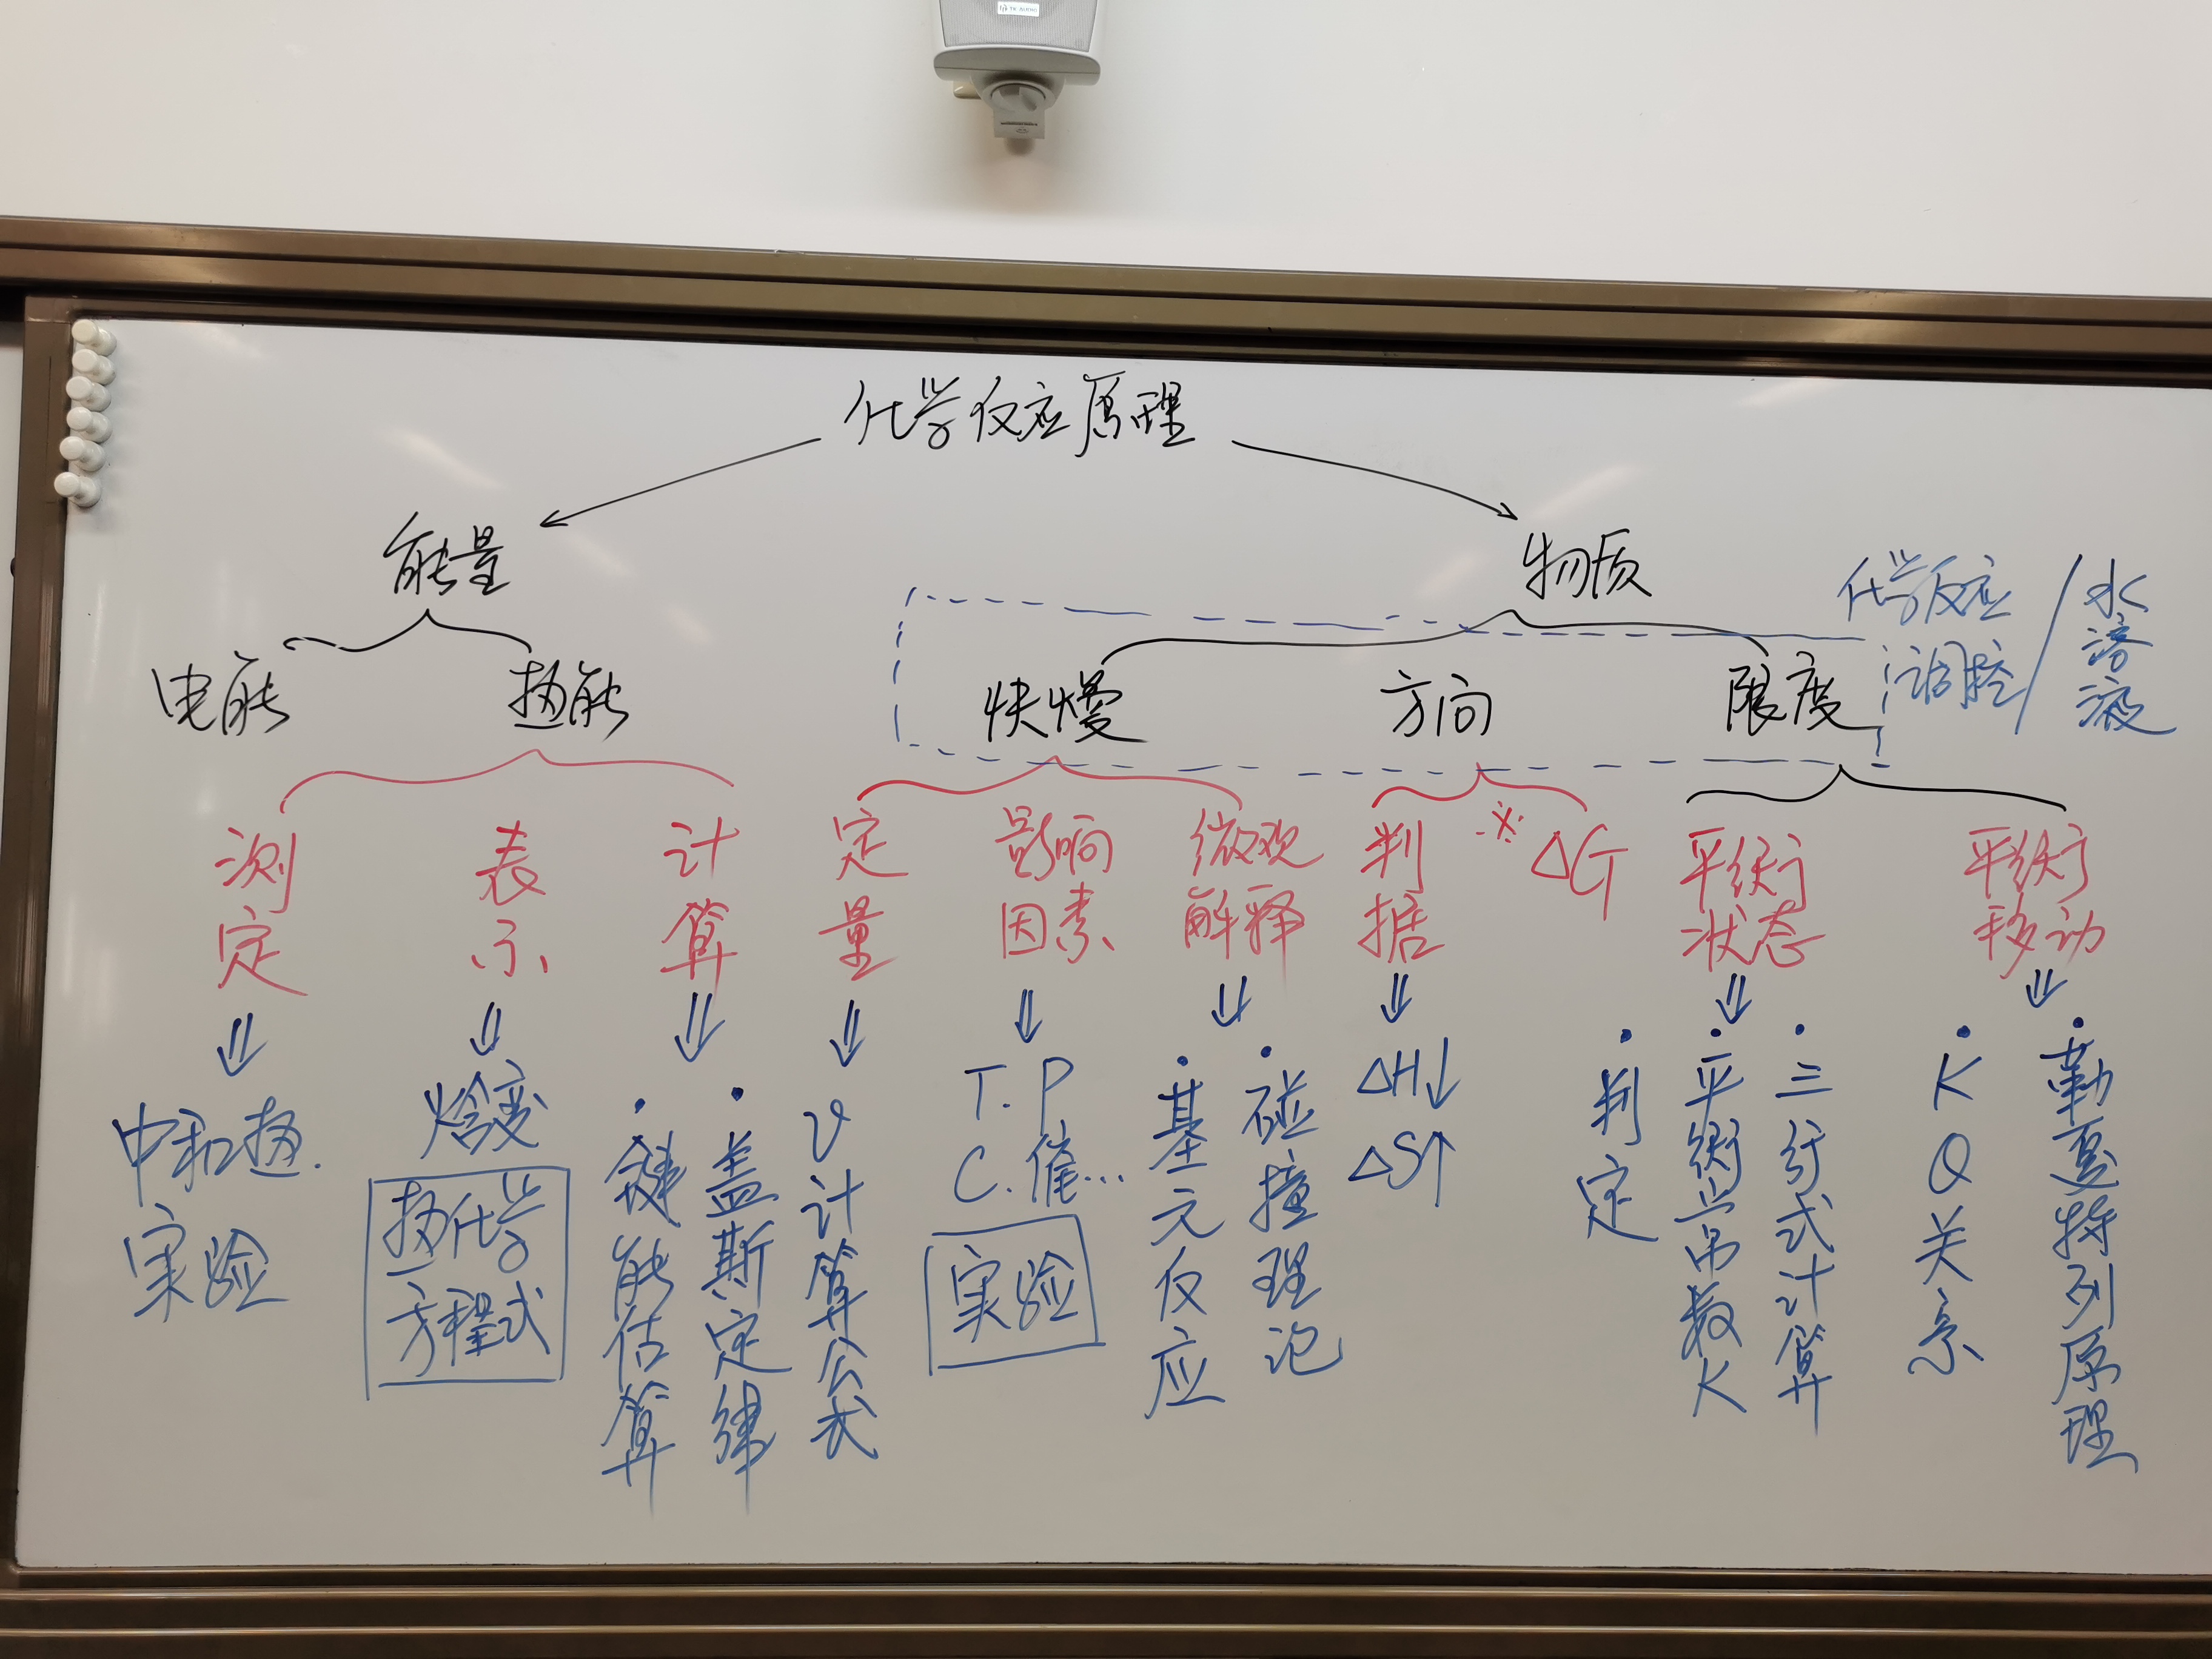 化学反应原理
能量
物质
化学反应调控/水溶液
电能
热能
快慢
方向
限度
测定
表示
计算
定量
影响因素
微观解释
判据
※ΔG
平衡状态
平衡移动
中和热.
实验
焓变
热化学
方程式
·键能估算
·盖斯定律
v计算公式
T.P
C.催...
实验
·基元反应
·碰撞理论
ΔH↓
ΔS↑
·判定
·平衡常数K
·三行式计算
·KQ关系
·勒夏特列原理